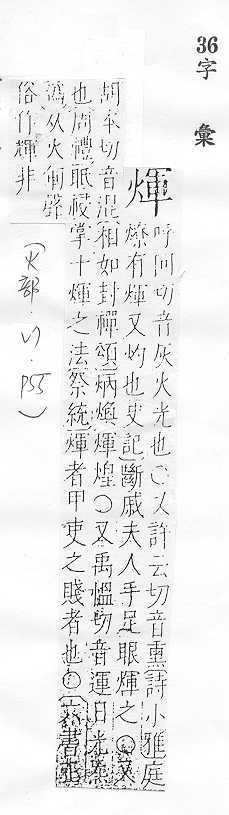 36字
彙
煇
呼回切音灰火光也○又許云切音熏詩小雅庭
燎有煇又灼也史記斷戚夫人手足眼煇之○又
胡本切音混相如封禪頌炳煥煇煌○又禹慍切音運日光氣
也周禮眂祲掌十煇之法祭統煇者甲吏之賤者也○
俗作輝非
(火部.
P55)